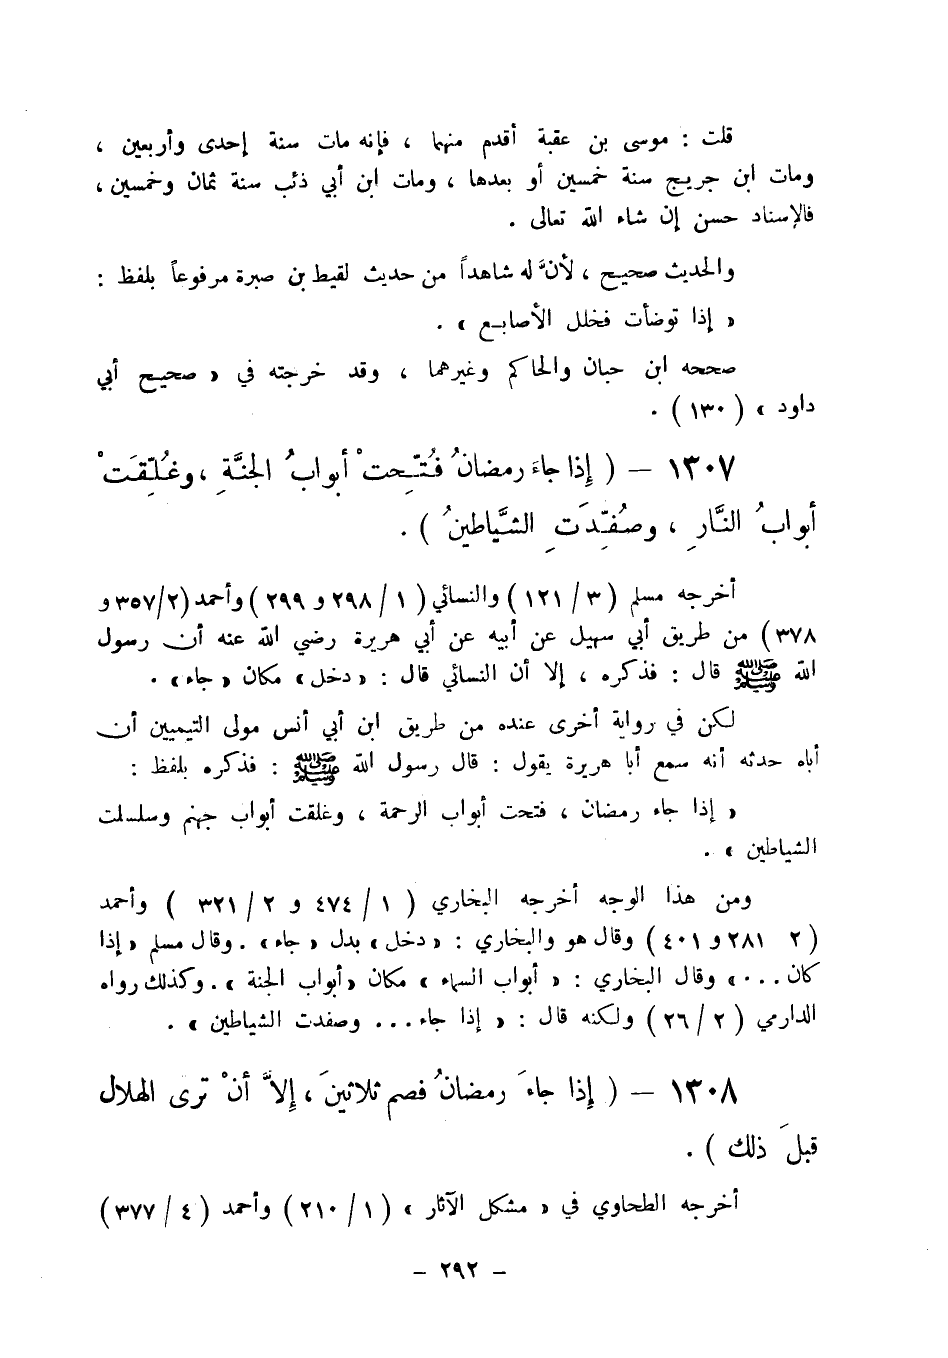 قلت : موسى بن عقبة أقدم منهما ، فإنه مات سنة إحدى وأربعين ،
ومات ابن جريج سنة خمسين أو بعدها ، ومات ابن أبي ذئب سنة ثمان وخمسين ،
فالإسناد حسن إن شاء الله تعالى .
والحديث صحيح ، لأنَّ له شاهداً من حديث لقيط بن صبرة مرفوعاً بلفظ :
« إذا توضأت فخلل الأصابع » .
صححه ابن حبان والحاكم وغيرهما ، وقد خرجته في « صحيح أبي
داود » ( ١٣٠ ) .
١٣٠٧ – ( إذا جاءَ رمضانُ فُتِّحتْ أبوابُ الجنَّةِ ، وغُلِّقَتْ
أبوابُ النَّارِ ، وصُفِّدَتِ الشَّياطينُ ) .
أخرجه مسلم ( ٣ / ١٢١ ) والنسائي ( ١ / ٢٩٨ و ٢٩٩ ) وأحمد (٢/ ٣٥٧ و
٣٧٨ ) من طريق أبي سهيل عن أبيه عن أبي هريرة رضي الله عنه أن رسول
الله ﷺ قال : فذكره ، إلا أن النسائي قال : « دخل » مكان « جاء » .
لكن في رواية أخرى عنده من طريق ابن أبي أنس مولى التيميين أن
أباه حدثه أنه سمع أبا هريرة يقول : قال رسول الله ﷺ : فذكره بلفظ :
« إذا جاء رمضان ، فتحت أبواب الرحمة ، وغلقت أبواب جهنم وسلسلت
الشياطين » .
ومن هذا الوجه أخرجه البخاري ( ١ / ٤٧٤ و ٢ / ٣٢١ ) وأحمد
( ٢ ٢٨١ و ٤٠١ ) وقال هو والبخاري : « دخل » بدل « جاء » . وقال مسلم « إذا
كان . . . » وقال البخاري : « أبواب السماء » مكان « أبواب الجنة » . وكذلك رواه
الدارمي ( ٢ / ٢٦ ) ولكنه قال : « إذا جاء . . . وصفدت الشياطين » .
١٣٠٨ – ( إذا جاءَ رمضانُ فصم ثلاثينَ ، إلاَّ أنْ ترى الهلال
قبلَ ذلك ) .
أخرجه الطحاوي في « مشكل الآثار » ( ١ / ٢١٠ ) وأحمد ( ٤ / ٣٧٧ )
– ٢٩٢ –